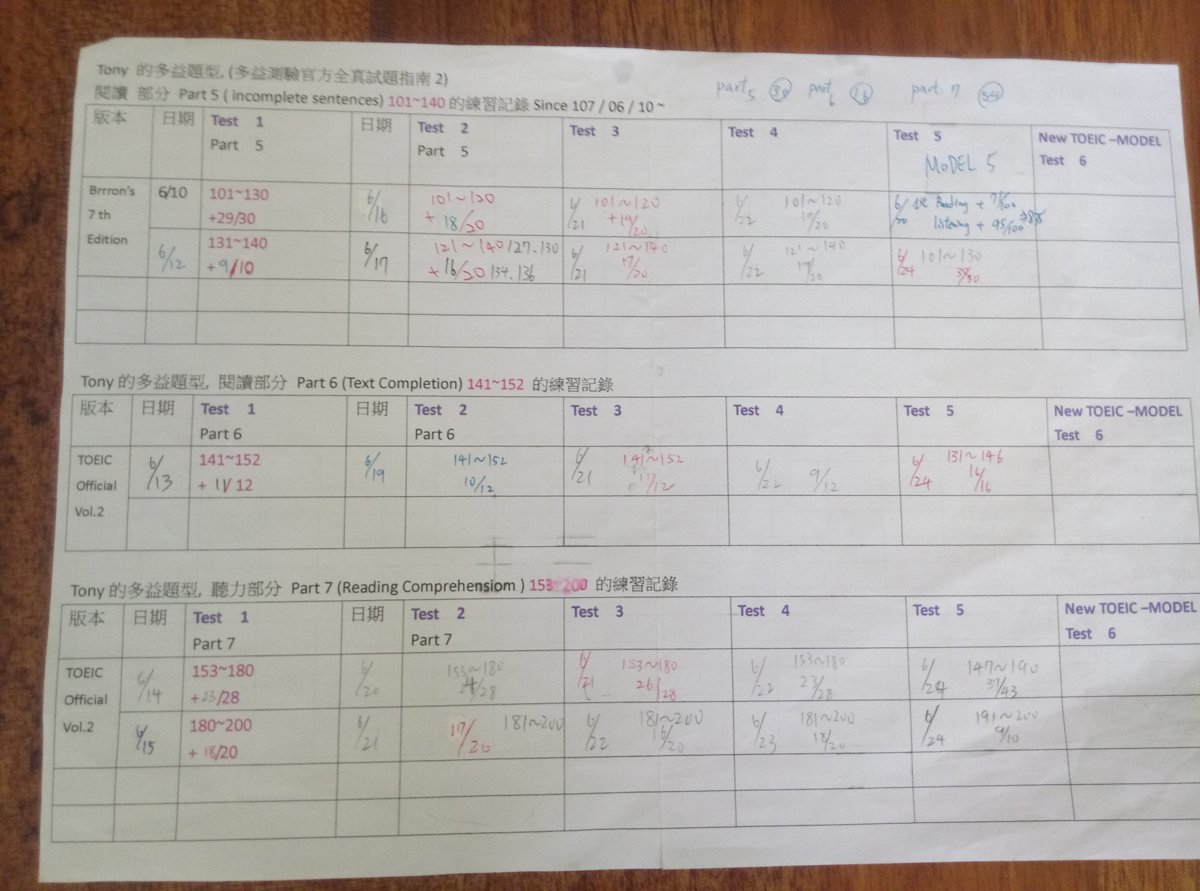 Tony 的多益題型, (多益測驗官方全真試題指南 2)
閱讀 部分 Part 5 ( incomplete sentences) 101~140 的練習記錄 Since 107 / 06 / 10 ~
part 5 30 part 6 16 part 7 54
版本 日期 Test 1 日期 Test 2 Test 3 Test 4 Test 5 New TOEIC –MODEL
Part 5 Part 5 MODEL 5 Test 6
Brrron's 6/10 101~130 6/16 101~120 6/21 101~120 6/22 101~120 6/20 1st Reading + 71/100
7 th +29/30 + 18/20 +19/20 19/20 listening + 95/100
Edition 6/12 131~140 6/17 121~140 127.130 6/21 121~140 6/22 121~140 6/24 101~130
+ 9/10 + 16/20 134.136 17/20 17/20
Tony 的多益題型, 閱讀部分 Part 6 (Text Completion) 141~152 的練習記錄
版本 日期 Test 1 日期 Test 2 Test 3 Test 4 Test 5 New TOEIC –MODEL
Part 6 Part 6 Test 6
TOEIC 6/13 141~152 6/19 141~152 6/21 141~152 6/22 9/12 6/24 131~146
Official + 11/12 10/12 11/12 16/16
Vol.2
Tony 的多益題型, 聽力部分 Part 7 (Reading Comprehensiom ) 153~200 的練習記錄
版本 日期 Test 1 日期 Test 2 Test 3 Test 4 Test 5 New TOEIC –MODEL
Part 7 Part 7 Test 6
TOEIC 6/14 153~180 6/20 153~180 6/21 153~180 6/22 153~180 6/24 147~190
Official +23/28 24/28 26/28 23/28 37/43
Vol.2 6/15 180~200 6/21 17/20 181~200 6/22 181~200 6/23 181~200 6/24 191~200
+ 18/20 16/20 18/20 9/10